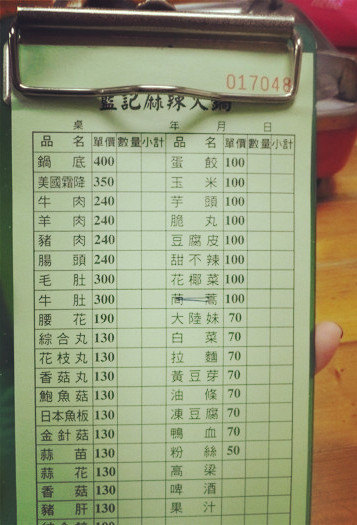 017048
藍記麻辣火鍋
桌 年 月 日
品名 單價 數量 小計 品名 單價 數量 小計
鍋底 400 蛋餃 100
美國霜降 350 玉米 100
牛肉 240 芋頭 100
羊肉 240 脆丸 100
豬肉 240 豆腐皮 100
腸頭 240 甜不辣 100
毛肚 300 花椰菜 100
牛肚 300 茼蒿 100
腰花 190 大陸妹 70
綜合丸 130 白菜 70
花枝丸 130 拉麵 70
香菇丸 130 黃豆芽 70
鮑魚菇 130 油條 70
日本魚板 130 凍豆腐 70
金針菇 130 鴨血 70
蒜苗 130 粉絲 50
蒜花 130 高梁
香菇 130 啤酒
豬肝 130 果汁